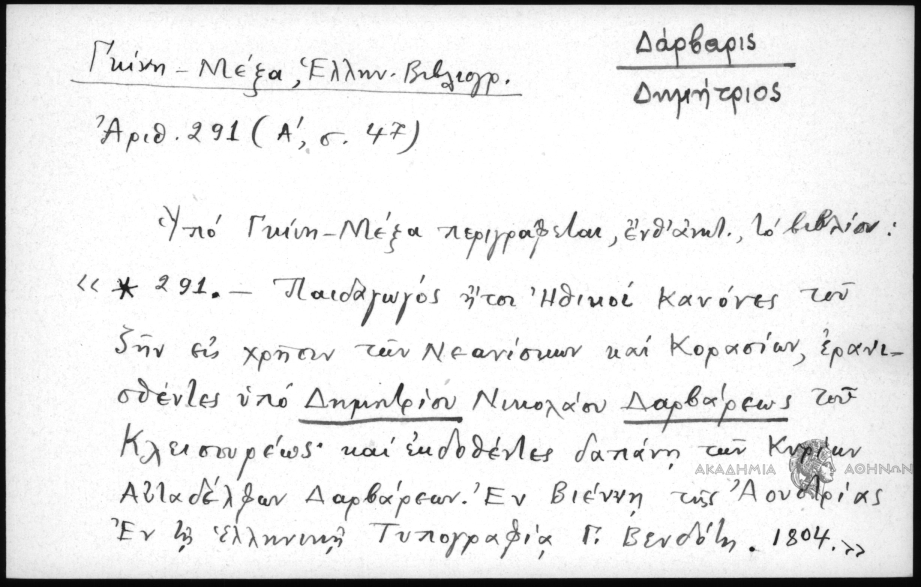 Δάρβαρις
Δημήτριος
Γκίνη – Μέξα, Ἑλλην. Βιβλιογρ.
Ἀριθ. 291 (Α΄, σ. 47)
Ὑπό Γκίνη – Μέξα περιγράφεται, ἐνθ' ἀνωτ., τό βιβλίον:
« * 291. – Παιδαγωγός ἤτοι Ἠθικοί Κανόνες τοῦ
ζῆν εἰς χρῆσιν τῶν Νεανίσκων καί Κορασίων, ἐρανι–
σθέντες ὑπό Δημητρίου Νικολάου Δαρβάρεως τοῦ
Κλεισουρέως· καί ἐκδοθέντες δαπάνῃ τῶν Κυρίων
ΑΚΑΔΗΜΙΑ ΑΘΗΝΩΝ
Αὐταδέλφων Δαρβάρεων. Ἐν Βιέννῃ τῆς Ἀουστρίας
Ἐν τῇ ἑλληνικῇ Τυπογραφίᾳ Γ. Βενδότη. 1804.»